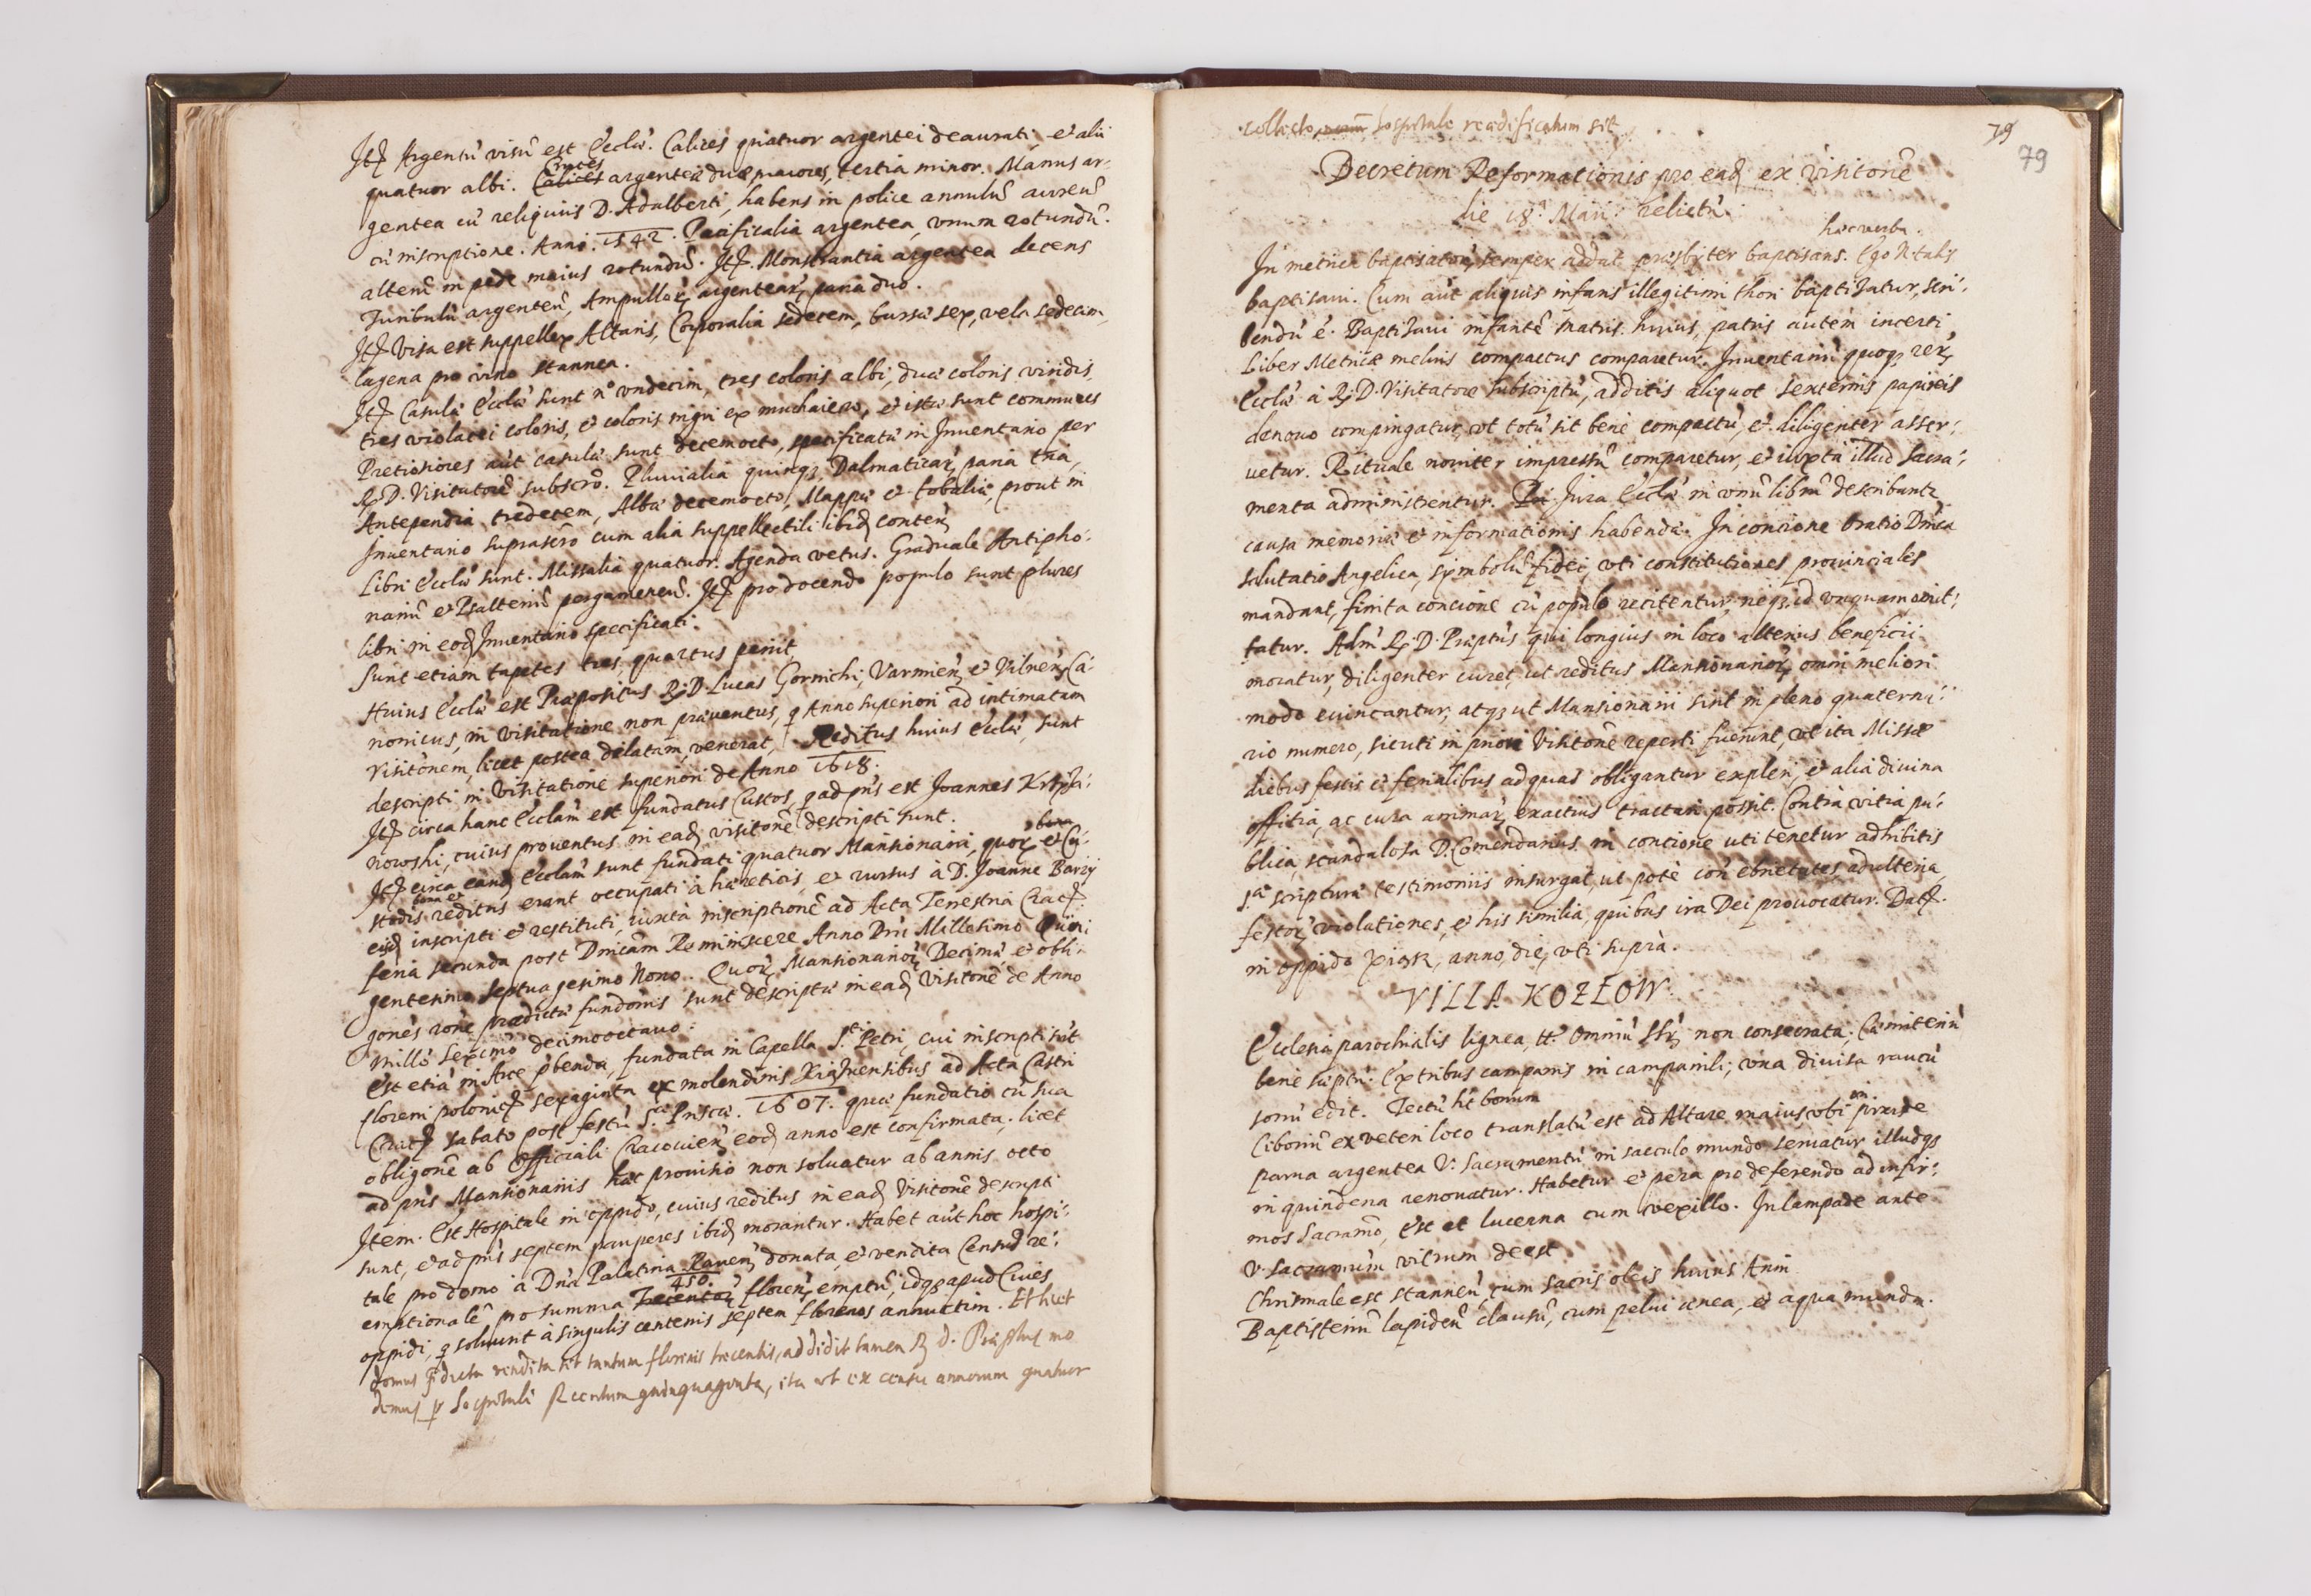 Itq Argentũ visũ est Eccłæ. Calices quatuor argentei deaurati, et alii
quatuor albi. Calices Cruces argenteæ duæ maiores, tertia minor. Manus ar-
gentea cũ reliquiis D. Adalberti, habens in police annulũ aureũ
cũ inscriptione. Anno. 1542. Pacificalia argentea, vnum rotundũ.
alterũ in pede maius rotundũ. Itq. Monstrantia argentea decens
Turibulũ argenteũ, Ampullarꝝ argentearꝝ paria duo.
Itq Visa est suppellex Altaris, Corporalia sedecem, bursæ sex, vela sedecim,
lagena pro vino stannea.
Itq Casulæ Eccłæ sunt nº vndecim, tres coloris albi, duæ coloris viridis,
tres violacei coloris, et coloris nigri ex muchaiero, et istæ sunt communes
Pretiosiores aũt casulæ sunt decemocto, specificatæ in Inuentario per
R. D. Visitatorẽ subscrõ. Pluuialia quinqꝫ, Dalmaticarꝝ paria tria,
Antependia tredecem, Albæ decemocto, Mappæ et tobaliæ, prout in
Inuentario suprascrõ cum alia suppellectili ibidꝫ contenꝫ
Libri Eccłæ sunt. Missalia quatuor. Agenda vetus. Graduale Antipho:
nariũ et Psalteriũ pergameneũ. Itq pro docendo populo sunt plures
libri in eodꝫ Inuentario specificati.
Sunt etiam tapetes tres, quartus periit
Huius Eccłæ est Præpositus R. D. Lucas Gornichi, Varmienꝫ et Vilnenꝫ Ca:
nonicus, in visitatione non præuentus, q Anno superiori ad intimatam
visitõnem, licet postea dilatam, venerat, Reditus huius Eccłæ, sunt
descripti in Visitatione superiori de Anno 1618.
Itq circa hanc Eccłam est fundatus Custos, q ad pñs est Joannes
nowski, cuius prouentus in eadꝫ visitonẽ descripti sunt.
Itq circa eandꝫ Eccłam sunt fundati quatuor Mansionarii, quorꝝ bona et Cu:
stodis bona et reditus erant occupati à hæreticis, et rursus à D. Joanne Barzy
eisdꝫ inscripti et restituti, iuxta inscriptionẽ ad Acta Terrestria Cracq.
feria secunda post Dnicam Reminiscere Anno Dñi Millesimo Quin
gentesimo Septuagesimo Nono. Quorꝝ Mansionariorꝝ Decimæ, et obli:
gones rõne prædictæ fundõnis sunt descriptæ in eadꝫ visitonẽ de Anno
Millõ Sexcmo decimooctauo.
Est etiã in Arce pbenda, fundata in Capella S.ti Petri, cui inscripti sũt
floreni polonicq sexaginta ex molendinis Xiąznensibus ad Acta Castri
Cracq sabato post festũ S.æ Priscæ. 1607. quæ fundatio cũ sua
obligonẽ ab Officiali Cracouienꝫ eodꝫ anno est confirmata, licet
ad pñs Mansionariis hæc prouisio non soluatur ab annis octo
Item. Est Hospitale in oppido, cuius reditus in eadꝫ Visitonẽ descripti
sunt, et ad pñs septem pauperes ibidꝫ morantur. Habet aũt hoc hospi:
tale pro domo à Dña Palatina Rauenꝫ donata, et vendita Censũ re:
emptionalẽ pro summa Trecentorꝝ 450. florenꝫ emptũ, idqꝫ apud Ciues
oppidi, q soluunt à singulis centenis septem florenos annuatim. Et licet
domus pdicta vendita sit tantum florenis trecentis, addidit tamen R. d. Præptus mo
dernus pr Hospitali centum quinquaginta, ita ut ex censu annorum quatuor
collecto, Hospitale reædificatum sit
79
79
Decretum Reformationis pro eadꝫ ex visitonẽ
die 18ª Maii relictũ
hæc verba.
In metrica baptisatorꝝ semper addat præsbyter baptisans. Ego N. talis
baptisaui. Cum aũt aliquis infans illegitimi thori baptizatur, scri:
bendũ ẽ. Baptizaui infantẽ Matris huius, patris autem incerti
Liber Metricæ melius compactus comparetur. Inuentariũ quoqꝫ rerꝝ
Eccłæ à R. D. Visitatore subscriptũ, additis aliquot sexternis papireis
denouo compingatur, vt totũ sit bene compactũ, et diligenter asser:
uetur. Rituale nouiter impressũ comparetur, et iuxta illud Sacra:
menta administrentur. Jura Eccłæ in vnũ librũ describantꝛ
causa memoriæ et informationis habendæ. In concione oratio Dnica
salutatio Angelica, symbolũ fidei, vti constitutiones prouinciales
mandant, finita concione cũ populo recitentur, neqꝫ id vnquam omit:
tatur. Adm R. D. Præptus qui longius in loco alterius beneficii
moratur, diligenter curet, ut reditus Mansionariorꝝ omni meliori
modo euincantur, atqꝫ ut Mansionarii sint in pleno quaterna:
rio numero, sicuti in priori Visitonẽ reperti fuerunt, vt ita Missæ
diebus festis et ferialibus ad quas obligantur expleri, et alia diuina
officia, ac cura animarꝝ exactius tractari possit. Contra vitia pu:
blica, scandalosa D. Comendarius in concione uti tenetur adhibitis
S.æ scripturæ testimoniis insurgat, ut pote con ebrietates, adulteria,
festorꝝ violationes, et his similia, quibus ira Dei prouocatur. Datq.
in oppido Xiąsk, anno, die, vti supra.
VILLA KOZŁOW.
Ecclesia parochialis lignea, tt. Omniũ Sstꝝ non consecrata, Cæmiteriũ
bene sæptũ. Ex tribus campanis in campanili, vna diuisa raucũ
sonũ edit. Tectũ hẽt bonum
Ciboriũ ex veteri loco translatũ est ad Altare maius, vbi in pixide
parua argentea V. Sacramentũ in sacculo mundo seruatur illudqꝫ
in quindena renouatur. Habetur et pera pro deferendo ad infir:
mos Sacramõ, Est et lucerna cum vexillo. In lampade ante
V. Sacramũm vitrum deest
Chrismale est stanneũ, cum sacris oleis huius Anni
Baptisteriũ lapideũ clausũ, cum pelui ænea, et aqua munda.